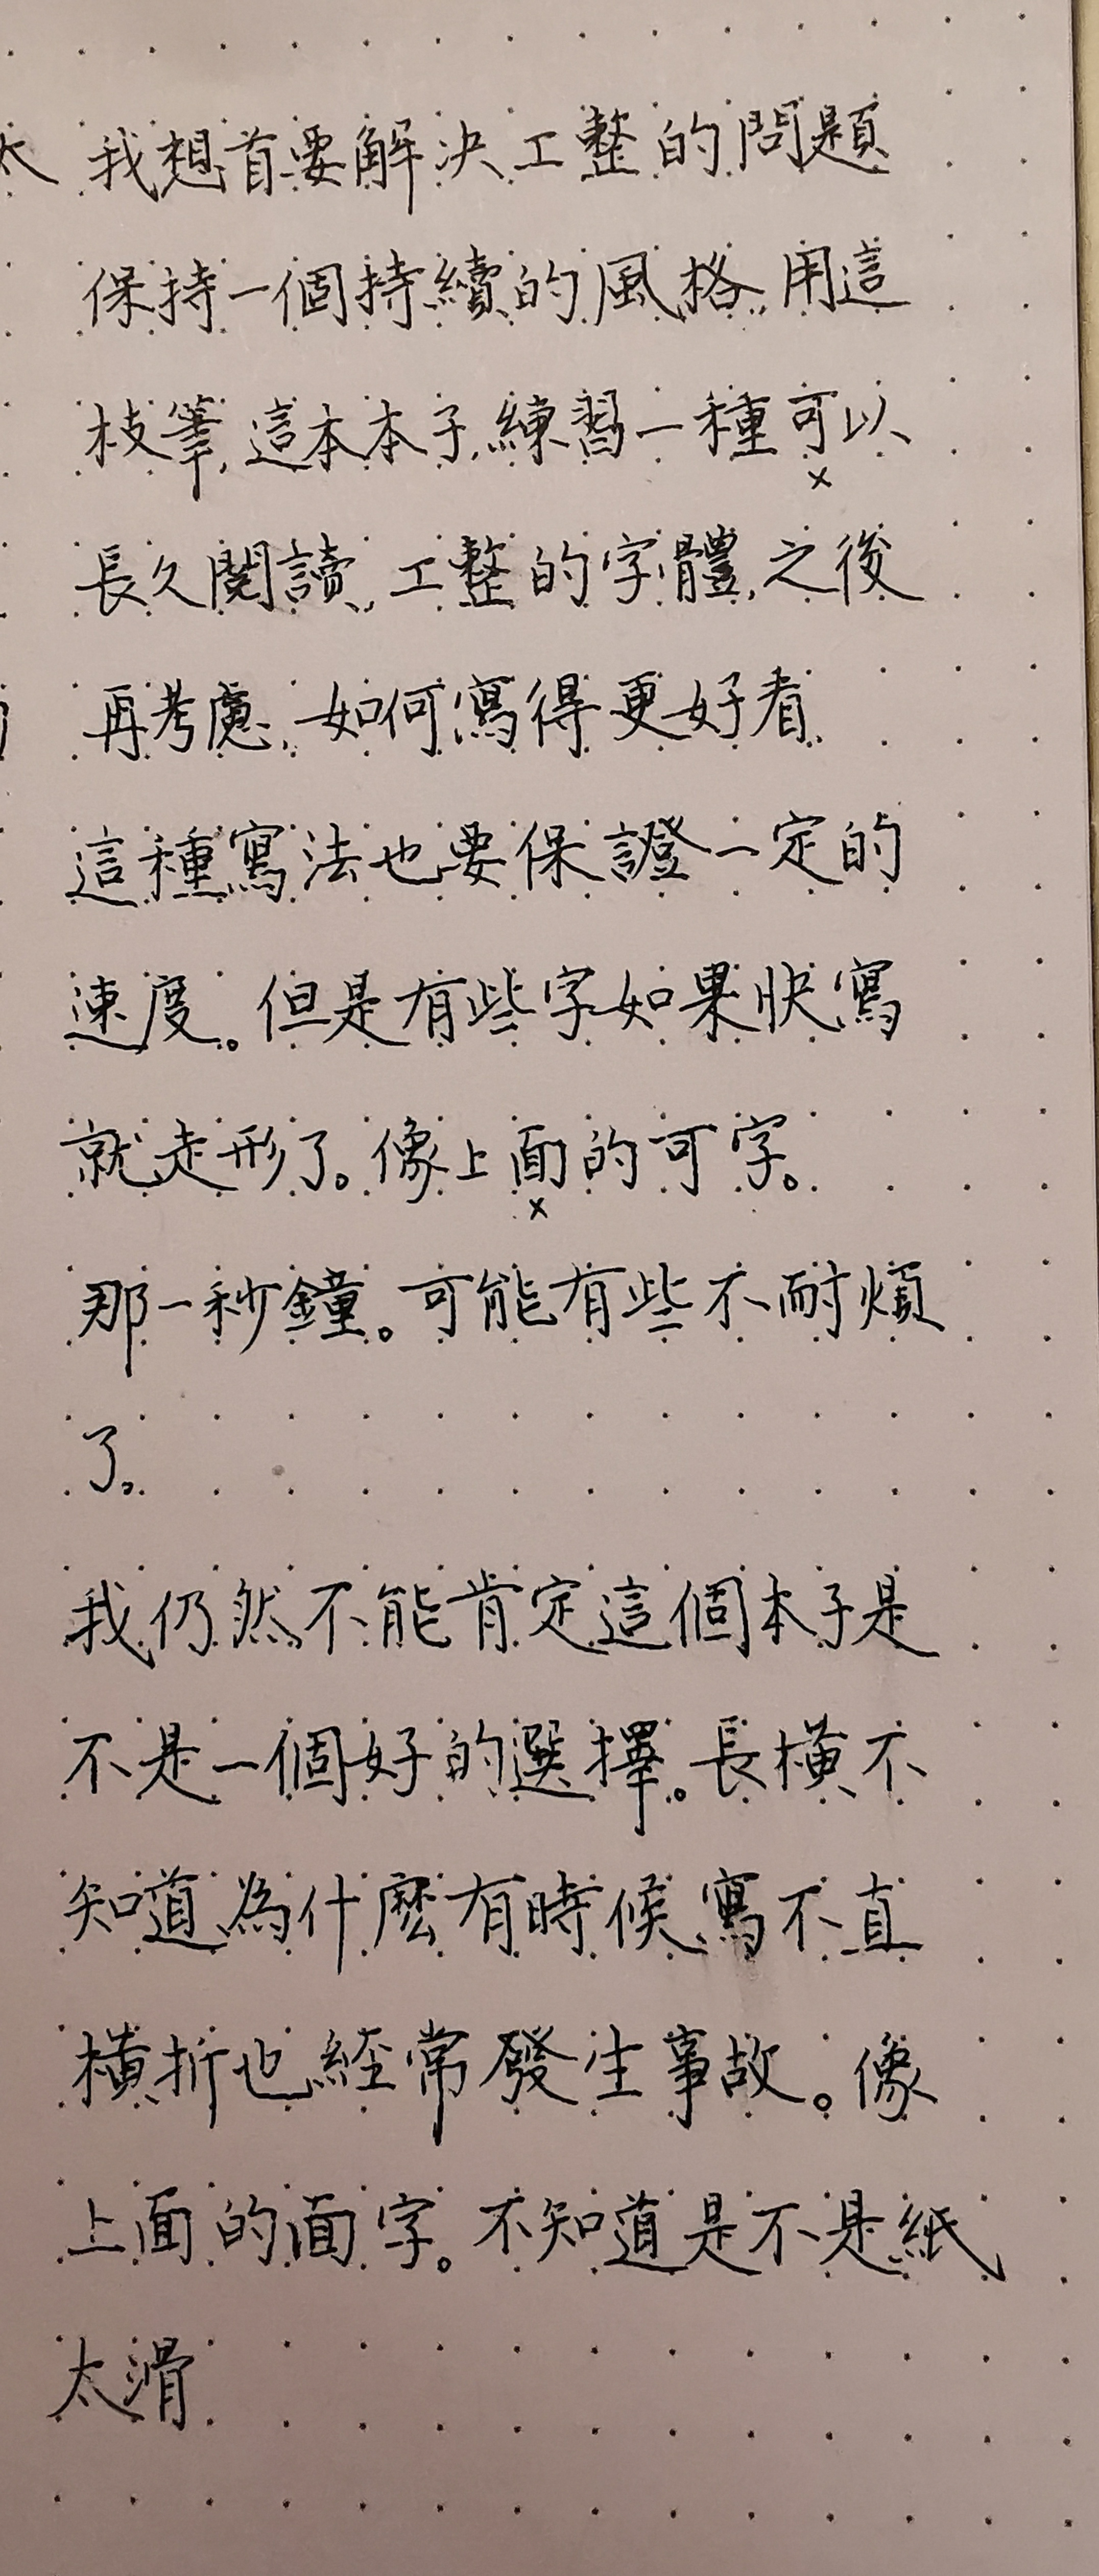 我想首要解決工整的問題
保持一個持續的風格,用這
枝筆,這本本子,練習一種可以
x
長久閱讀,工整的字體,之後
再考慮,如何寫得更好看.
這種寫法也要保證一定的
速度。但是有些字如果快寫
就走形了。像上面的可字。
x
那一秒鐘。可能有些不耐煩
了。
我仍然不能肯定這個本子是
不是一個好的選擇。長橫不
知道為什麼有時候寫不直
橫折也經常發生事故。像
上面的面字。不知道是不是紙
太滑